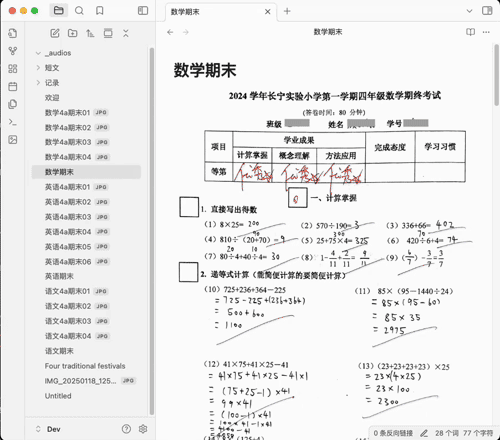 数学期末
_audios
短文
记录
欢迎
数学4a期末01 JPG
数学4a期末02 JPG
数学4a期末03 JPG
数学4a期末04 JPG
数学期末
英语4a期末01 JPG
英语4a期末02 JPG
英语4a期末03 JPG
英语4a期末04 JPG
英语4a期末05 JPG
英语4a期末06 JPG
英语期末
语文4a期末01 JPG
语文4a期末02 JPG
语文4a期末03 JPG
语文4a期末04 JPG
语文期末
Four traditional festivals
IMG_20250118_125... JPG
Untitled
Dev
数学期末
数学期末
2024 学年长宁实验小学第一学期四年级数学期终考试
(答卷时间：80 分钟)
班级 姓名 学号
项目 学业成果 完成态度 学习习惯
计算掌握 概念理解 方法应用
等第
一、计算掌握
1. 直接写出得数
(1) 8×25= 200 (2) 570÷190= 3 (3) 336+66= 402
(4) 810÷(20+70) =9 (5) 25+75×4= 325 (6) 420÷6+4= 74
(7) 80÷4+40÷4= 30
2. 递等式计算（能简便计算的要简便计算）
(10) 725+236+364−225 (11) 85×(95−1440÷24)
= 725-225+(236+364) = 85×(95-60)
= 500+600 = 85×35
= 1100 = 2975
(12) 41×75+41×25−41 (13) (23+23+23+23)×25
= 41×75+41×25-41×1 = 23×(4×25)
= (75+25-1)×41 = 23×100
= 99×41 = 2300
= (100-1)×41
0 条反向链接 28 个词 77 个字符